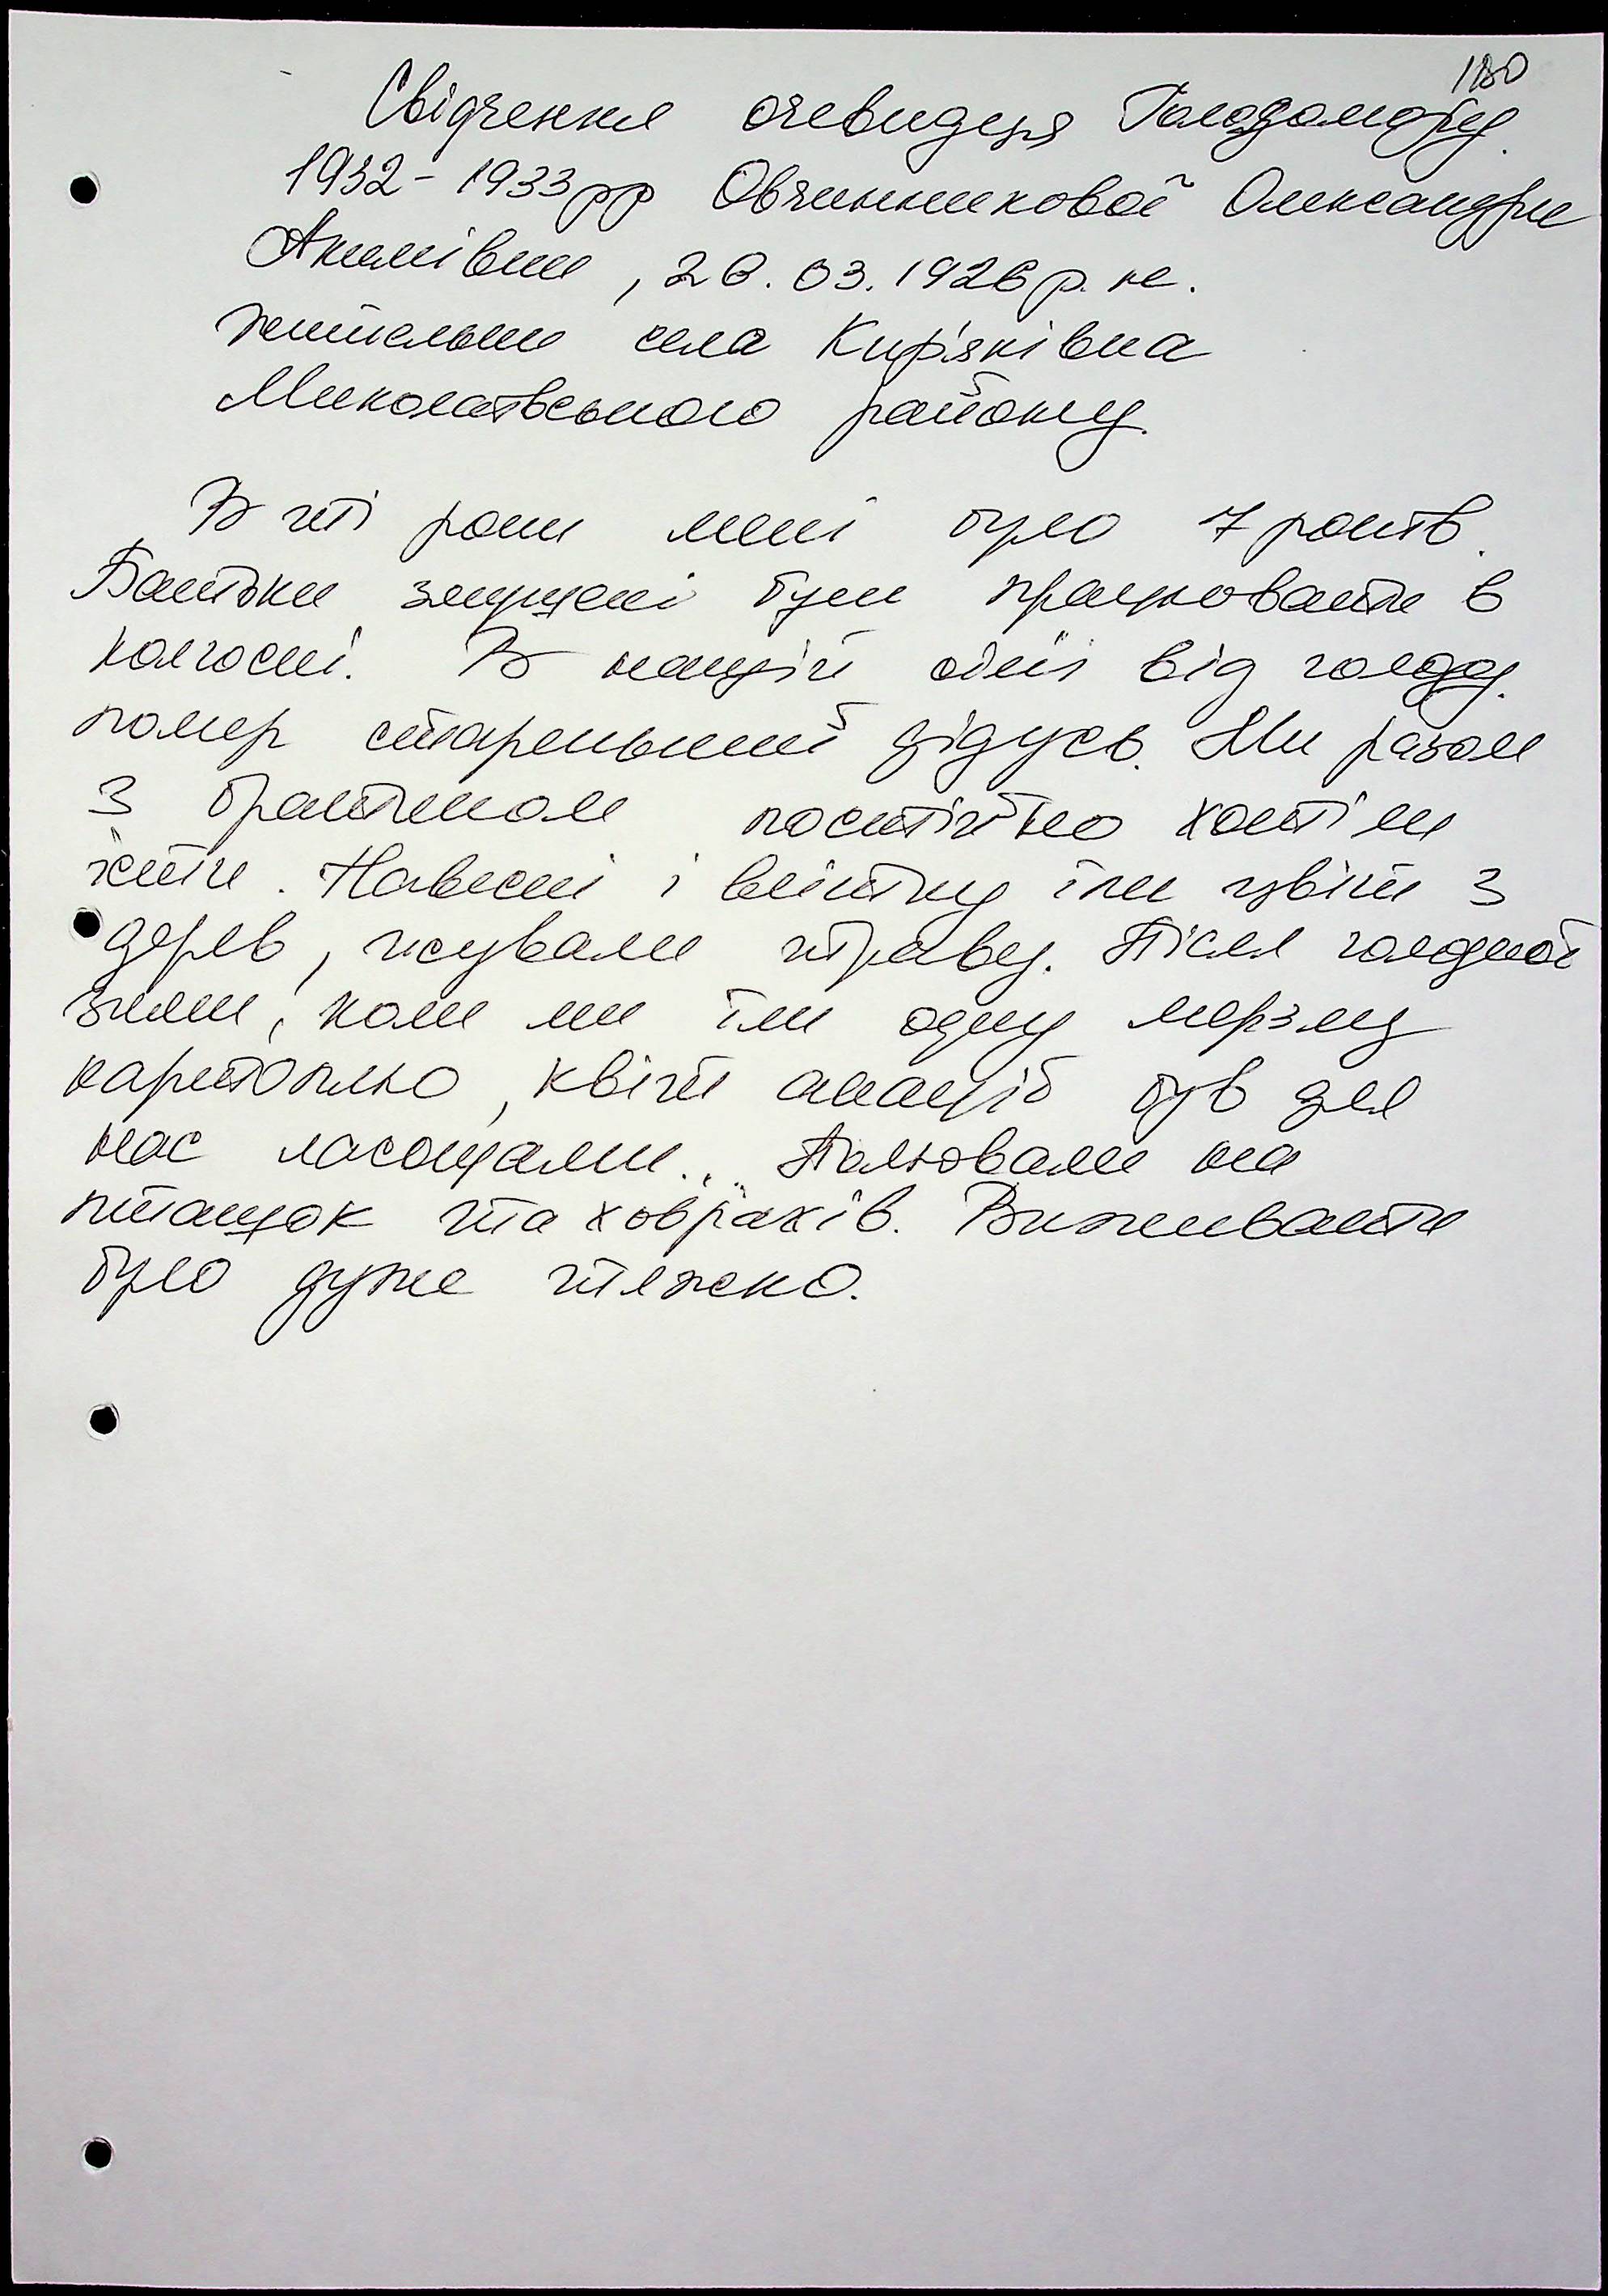 180
Свідчення очевидця Голодомору
1932-1933рр Овчинникової Олександри
Акимівни, 20.03.1926 р.н.
жительки села Кир'яківка
Миколаївського району.
В ті роки мені було 7 років.
Батьки змушені були працювати в
колгоспі. В нашій сім'ї від голоду
помер старенький дідусь. Ми разом
з братиком постійно хотіли
їсти. Навесні і влітку їли цвіт з
дерев, жували траву. Після голодної
зими, коли ми їли одну мерзлу
картоплю, квіт акацій був для
нас ласощами... Полювали на
пташок та ховрахів. Виживати
було дуже тяжко.